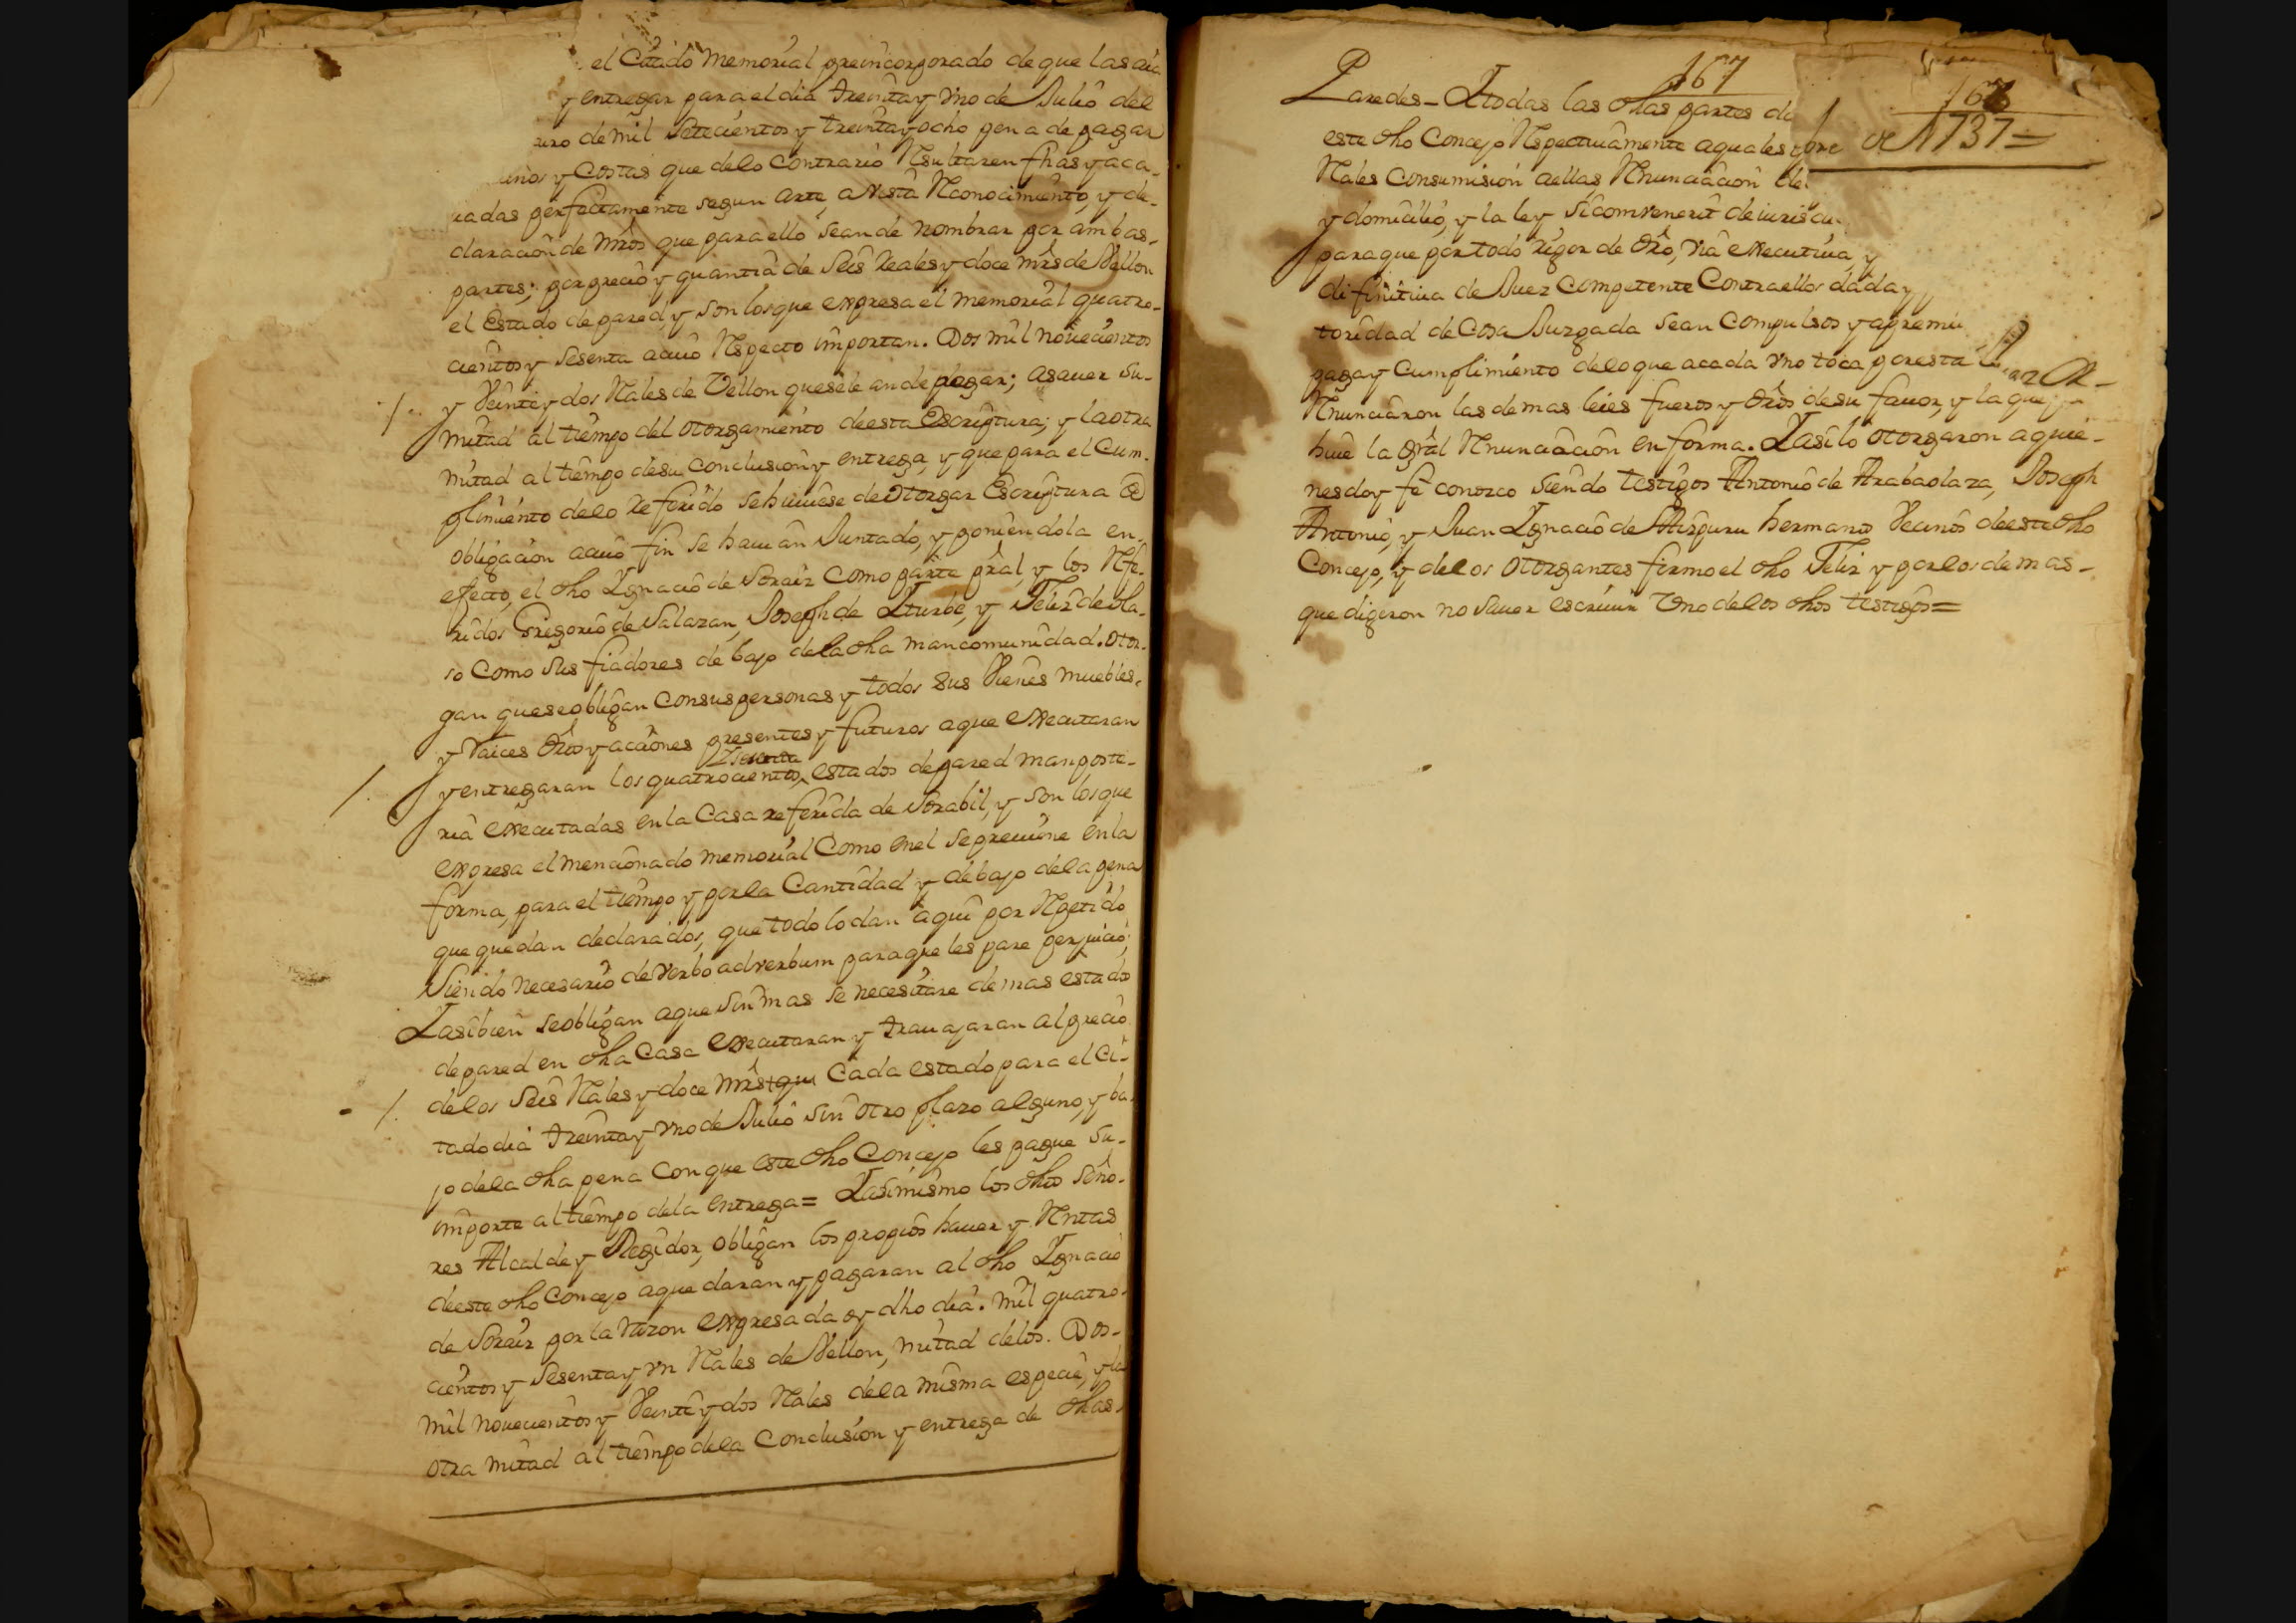 el Citado Memorial preincorporado de que las aia
y entregar para el dia treinta y vno de Julio del
de mil setecientos y treinta y ocho pena de pagar
y Costas que delo contrario Resultaren fhas y aca-
uadas perfectamente segun arte a vista Reconocimiento, y de-
claracion de Mros que para ello sean de nombrar por ambas-
partes; por precio y quantia de Seis Reales y doce mrs de Vellon
el Estado de pared, y son los que expresa el memorial quatro-
cientos y sesenta acuio Respecto importan. Dos mil nouecientos
y Veinte y dos Rales de Vellon que sele an de pagar; asauer su-
mitad al tiempo del otorgamiento de esta Escriptura; y la otra
mitad al tiempo de su conclusion y entrega, y que para el Cum-
plimiento delo referido se huuiese de otorgar Escriptura @
obligacion acuio fin se hauian Juntado, y poniendola en-
efecto, el dho Ygnacio de Soraiz como parte pral, y los Refe-
ridos Gregorio de Salazar, Joseph de Yturbe, y Feliz de Ola-
so como sus fiadores de bajo dela dha mancomunidad. Otor-
gan que se obligan con sus personas y todos sus Vienes muebles-
y Raices dros y acciones presentes y futuros a que executaran
y sesenta
y entregaran los quatrocientos, estados de pared manposte-
ria executadas en la Casa referida de Sorabil, y son los que
expresa el mencionado memorial Como enel se preuiene en la
forma, para el tiempo y por la Cantidad y debajo dela pena
que quedan declarados, que todo lo dan aqui por Repetido
Siendo necesario de verbo adverbum para que les pare perjuicio;
Y asibien se obligan a que sin mas se necesitare de mas estado
de pared en dha Casa executaran y trauajaran al precio
de los Seis Rales y doce mrs Cada estado para el Ci-
tado dia treinta y vno de Julio sin otro plazo alguno, y ba-
jo dela dha pena Con que este dho Concejo les pague su-
importe al tiempo dela entrega= Y asimismo los dhos seño-
res Alcalde y Regidor, obligan los propios hauer y Rentas
de este dho Concejo a que daran y pagaran al dho Ygnacio
de Soraiz por la Razon expresada oy dho dia. Mil quatro-
cientos y Sesenta y vn Rales de Vellon, mitad delos. Dos-
mil nouecientos y Veinte y dos Rales dela misma especie, y la
otra mitad al tiempo dela Conclusion y entrega de dhas
167
Paredes- Y todas las dhas partes
168
de 1737=
este dho Concejo Respectiuamente aquales
Rales consumision aellas, Renunciacion
y domicilio, y la ley sicomvenerit de
para que por todo rigor de dro, via executiua, y
difinitiua de Juez Competente Contra ellos dada y
toridad de Cosa Juzgada sean compulsos y apremi
paga y cumplimiento delo que acada vno toca por esta
Renunciaron las demas leies fueros y dros de su fauor, y la que
hiue la gral Renunciacion en forma. Y asi lo otorgaron a quie-
nes doy fe conozco siendo testigos Antonio de Arabaolaza, Joseph
Antonio, y Juan Ygnacio de hermanos Vecinos de este dho
Concejo, y delos otorgantes firmo el dho Feliz y por los demas-
que digeron no sauer escriuir Vno delos dhos testigos=